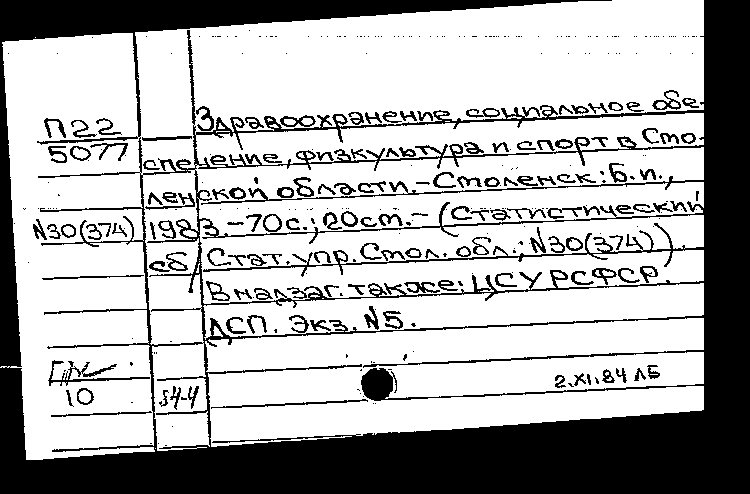 Здравоохранение, социальное обе-
П22
5077
спечение, физкультура и спорт в Смо-
ленской области.-Смоленск: б.и.,
N30(374)
1983.-70с.; 20см.-(Статистический
сб/Стат. упр. Смол. обл.; N30(374)).
В надзаг. также: ЦСУ РСФСР.
ДСП. Экз. N5.
10
84-4
2.XI.84 ЛБ